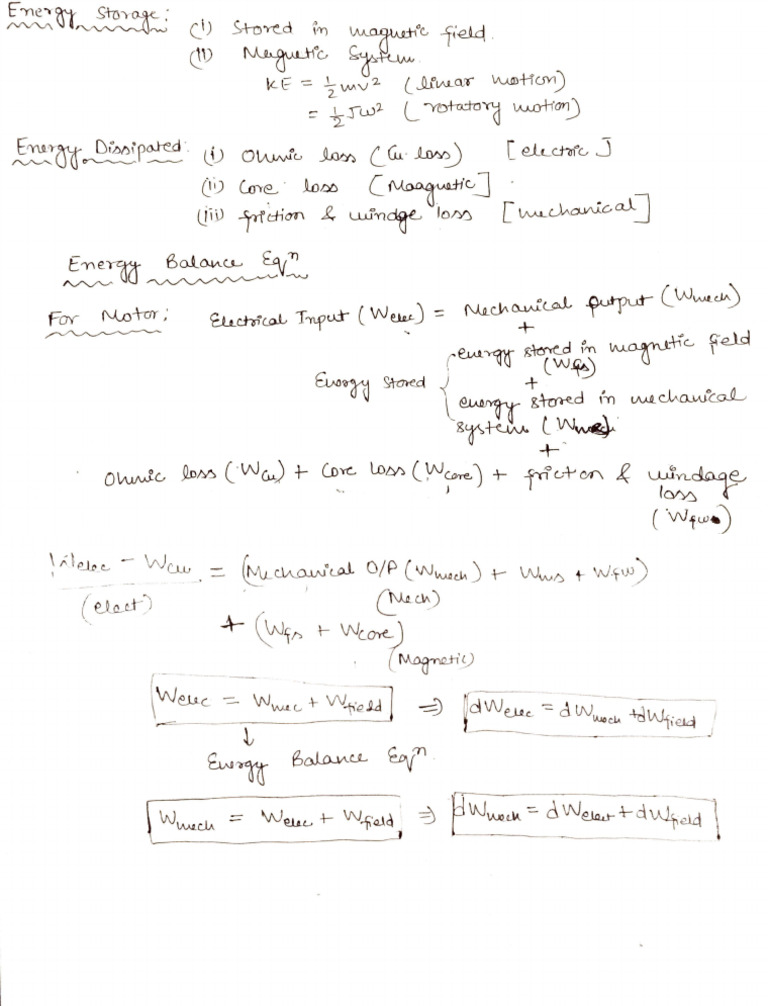 Energy Storage: (i) Stored in magnetic field.
(ii) Magnetic System.
KE = ½ mv² (linear motion)
= ½ Jω² (rotatory motion)
Energy Dissipated: (i) Ohmic loss (Cu loss) [electric]
(ii) Core loss [Maagnetic]
(iii) friction & windge loss [mechanical]
Energy Balance Eqⁿ
For Motor: Electrical Input (Welec) = Mechanical output (Wmech)
+
Energy Stored { energy stored in magnetic field
(Wfs)
+
energy stored in mechanical
system (Wms)
+
Ohmic loss (WCu) + Core loss (Wcore) + friction & windage
loss
(Wfw)
Welec - WCu = (Mechanical O/P (Wmech) + Wms + Wfw)
(elect) (Mech)
+ (Wfs + Wcore)
(Magnetic)
Welec = Wmec + Wfield ⇒ dWelec = dWmech + dWfield
↓
Energy Balance Eqⁿ.
Wmech = Welec + Wfield ⇒ dWmech = dWelect + dWfield